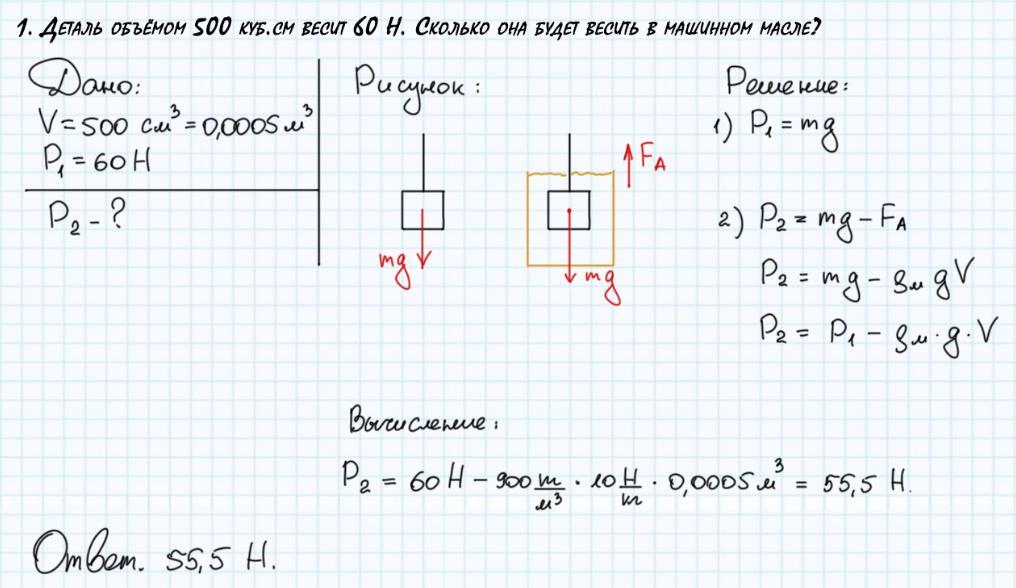 1. Деталь объёмом 500 куб.см весит 60 Н. Сколько она будет весить в машинном масле?
Дано:
V = 500 см³ = 0,0005 м³
P₁ = 60 Н
P₂ - ?
Рисунок:
mg
F_A
mg
Решение:
1) P₁ = mg
2) P₂ = mg - F_A
P₂ = mg - ρм g V
P₂ = P₁ - ρм · g · V
Вычисление:
P₂ = 60 Н - 900 m/м³ · 10 Н/m · 0,0005 м³ = 55,5 Н.
Ответ. 55,5 Н.